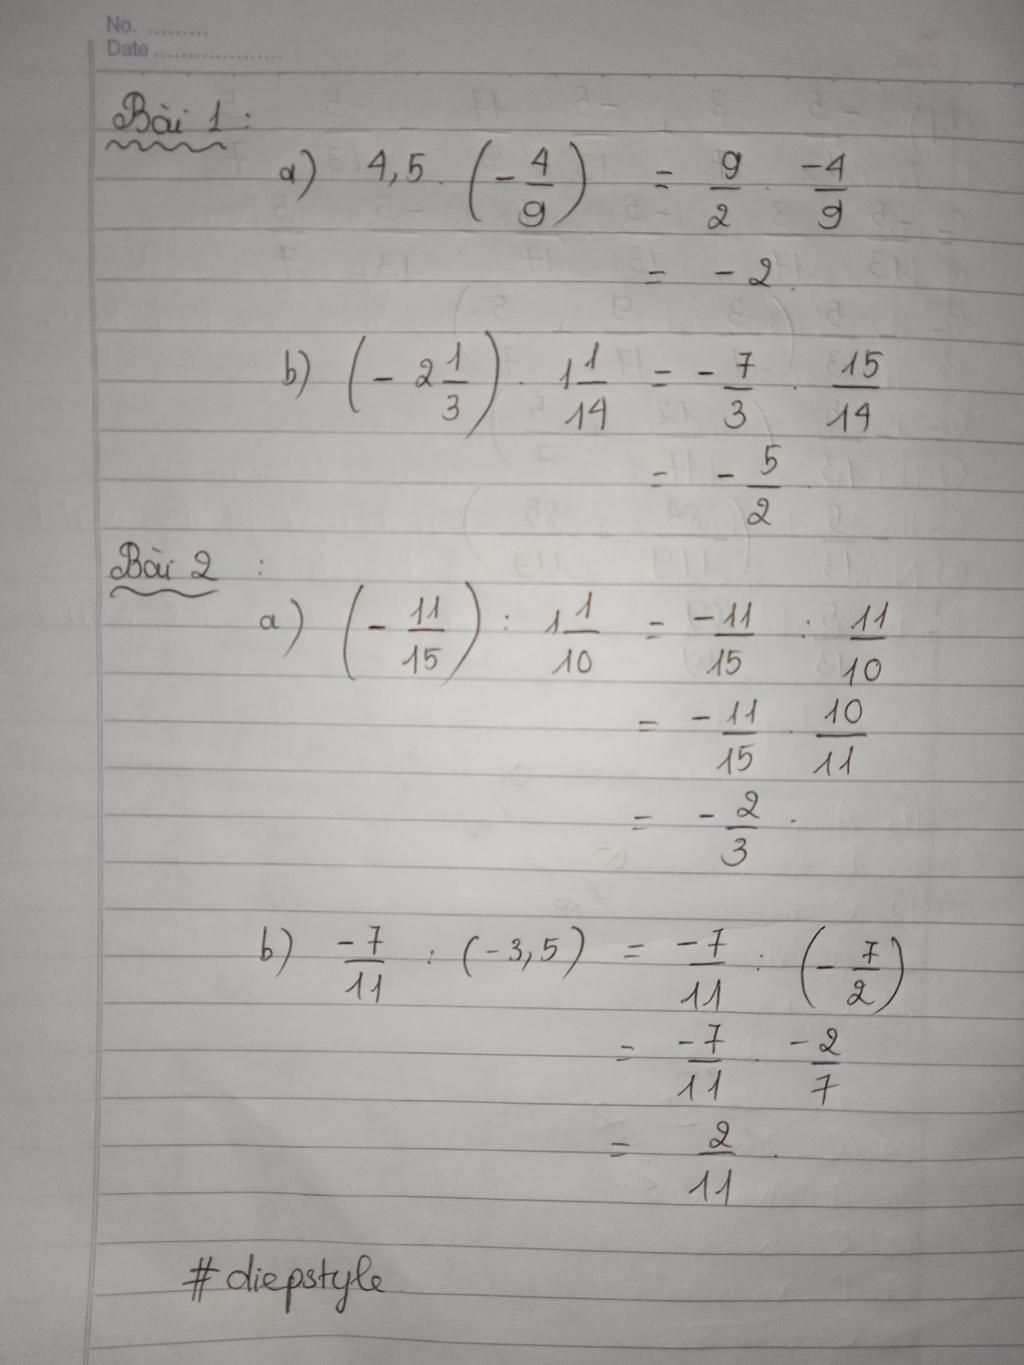 No. .........
Date ..................
Bài 1 :
a) 4,5 . (- 4/9) = 9/2 . -4/9
= - 2 .
b) (- 2 1/3) . 1 1/14 = - 7/3 . 15/14
= - 5/2 .
Bài 2 :
a) (- 11/15) : 1 1/10 = -11/15 : 11/10
= -11/15 . 10/11
= - 2/3 .
b) -7/11 : (-3,5) = -7/11 : (- 7/2)
= -7/11 . -2/7
= 2/11 .
#diepstyle